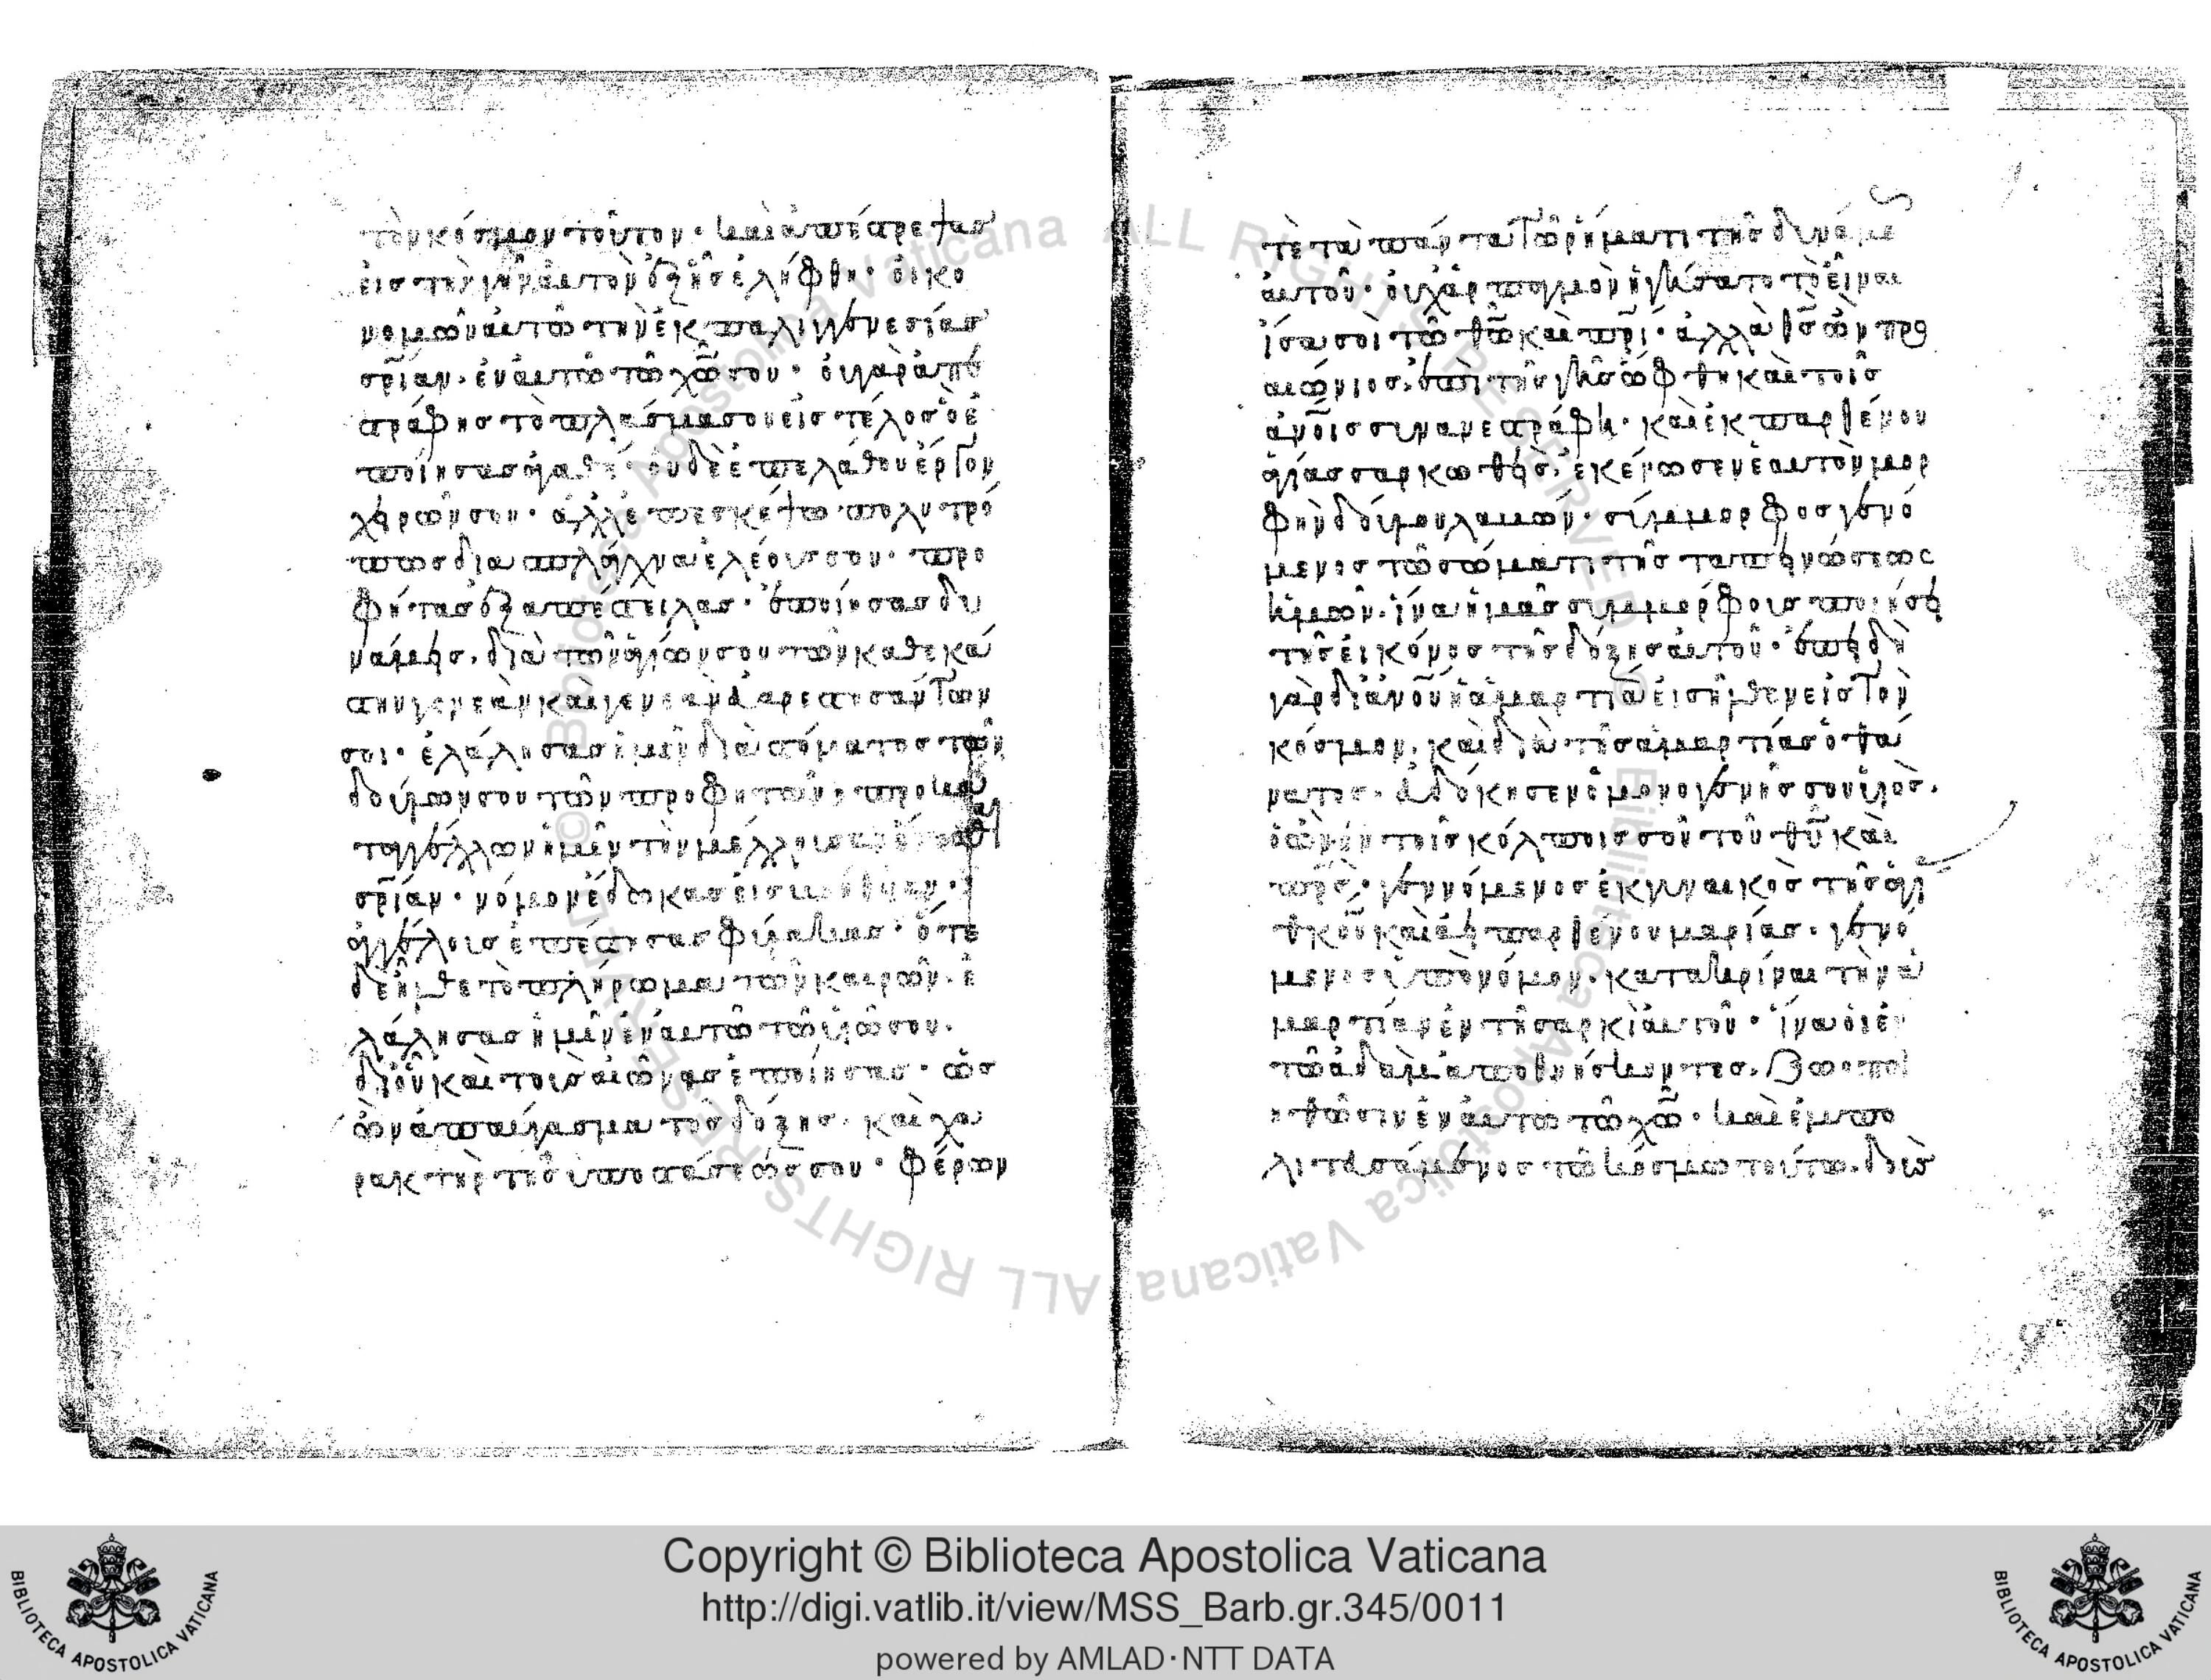 τὸν κόσμον τοῦτον· καὶ ἀπέστρεψας
εἰς τὴν γῆν ἐξ ἧς ἐλήφθη· οἰκο
νομῶν αὐτῶ τὴν ἐκ παλιγγενεσίας
σρίαν· ἐν αὐτῶ τῶ χω σου· οὐ γὰρ ἀπε
στράφης τὸ πλάσμα σου εἰς τέλος ὃ ἐ
ποίησας ἀγαθέ· οὐδὲ ἐπελάθου ἔργον
χειρῶν σου· ἀλλ' ἐπεσκέψω πολυτρό
πως διὰ σπλάγχνα ἐλέους σου· προ
φήτας ἐξαπέστειλας· ἐποίησας δυ
νάμεις· διὰ τῶν ἁγίων σου τῶν καθεκά
στην γενεὰν καὶ γενεὰν εὐαρεστησάντων
σοι· ἐλάλησας ἡμῖν διὰ στόματος τῶν
δούλων σου τῶν προφητῶν· προκα
ταγγέλλων ἡμῖν τὴν μέλλουσαν ἔσεσθαι
σρίαν· νόμον ἔδωκας εἰς βοήθειαν·
ἀγγέλους ἐπέστησας φύλακας· ὅτε
δὲ ἦλθε τὸ πλήρωμα τῶν καιρῶν· ἐ
λάλησας ἡμῖν ἐν αὐτῶ τῶ υἱῶ σου·
δι' οὗ καὶ τοὺς αἰῶνας ἐποίησας· ὃς
ὢν ἀπαύγασμα τῆς δόξης· καὶ χα
ρακτὴρ τῆς ὑποστάσεώς σου· φέρων
τὲ τὰ πάντα τῶ ῥήματι τῆς δυνάμε
αὐτοῦ· οὐχ ἁρπαγμὸν ἡγήσατο τὸ εἶναι
ἴσα σοὶ τῶ θω καὶ πρι· ἀλλὰ θς ὢν προ
αιώνιος· ἐπὶ τῆς γῆς ὤφθη καὶ τοῖς
ἀνοις συνανεστράφη· καὶ ἐκ παρθένου
ἁγίας σαρκωθεὶς· ἐκένωσεν ἑαυτὸν μορ
φὴν δούλου λαβών· σύμμορφος γενό
μενος τῶ σώματι τῆς ταπεινώσεως
ἡμῶν· ἵνα ἡμᾶς συμμόρφους ποιήσῃ
τῆς εἰκόνος τῆς δόξης αὐτοῦ· ἐπειδὴ
γὰρ δι' ἀνου ἡ ἁμαρτία εἰσῆλθεν εἰς τὸν
κόσμον· καὶ διὰ τῆς ἁμαρτίας ὁ θά
νατος· εὐδόκησεν ὁ μονογενής σου υἱὸς·
ὁ ὢν ἐν τοῖς κόλποις σοῦ τοῦ θυ καὶ
πρς· γενόμενος ἐκ γυναικὸς τῆς ἁγί
θκου καὶ ἀεὶ παρθένου μαρίας· γενό
μενος ὑπὸ νόμον· κατακρίναι τὴν ἁ
μαρτίαν ἐν τῆ σαρκὶ αὐτοῦ· ἵνα οἱ ἐν
τῶ ἀδὰμ ἀποθνήσκοντες· ζωοποι
ηθῶσιν ἐν αὐτῶ τῶ χω· καὶ ἐμπο
λιτευσάμενος τῶ κόσμω τούτω· δοὺς
Copyright © Biblioteca Apostolica Vaticana
http://digi.vatlib.it/view/MSS_Barb.gr.345/0011
powered by AMLAD·NTT DATA